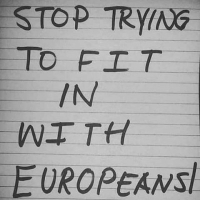 STOP TRYING
TO FIT
IN
WITH
EUROPEANS!